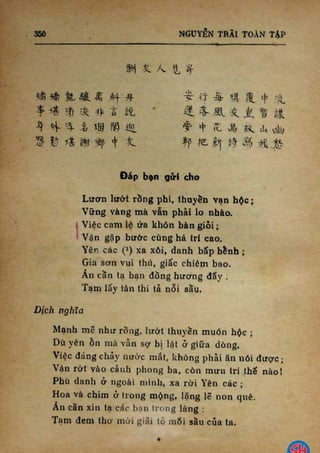 350
NGUYỄN TRÃI TOÀN TẬP
酬友人見寄
矯矯龍驤萬斛舟 安行每懼覆中流
事堪涕淚非言說 運落風波豈智謀
身外浮名烟閣迥 夢中花鳥故山幽
慇勤堪謝鄉中友 聊把新詩寫我愁
Đáp bạn gửi cho
Lươn lướt rồng phi, thuyền vạn hộc ;
Vững vàng mà vẫn phải lo nhào.
Việc cam lệ ứa khôn bàn giỏi ;
Vận gặp bước cùng há trí cao.
Yên các (¹) xa xôi, danh bấp bềnh ;
Gia sơn vui thú, giấc chiêm bao.
Ân cần tạ bạn đồng hương đấy ;
Tạm lấy tân thi tả nỗi sầu.
Dịch nghĩa
Mạnh mẽ như rồng, lướt thuyền muôn hộc ;
Dù yên ổn mà vẫn sợ bị lật ở giữa dòng.
Việc đáng chảy nước mắt, không phải ăn nói được ;
Vận rớt vào cảnh phong ba, còn mưu trí thế nào !
Phù danh ở ngoài mình, xa rời Yên các ;
Hoa và chim ở trong mộng, lặng lẽ non quê.
Ân cần xin tạ các bạn trong làng :
Tạm đem thơ mới giãi tỏ mối sầu của ta.
*